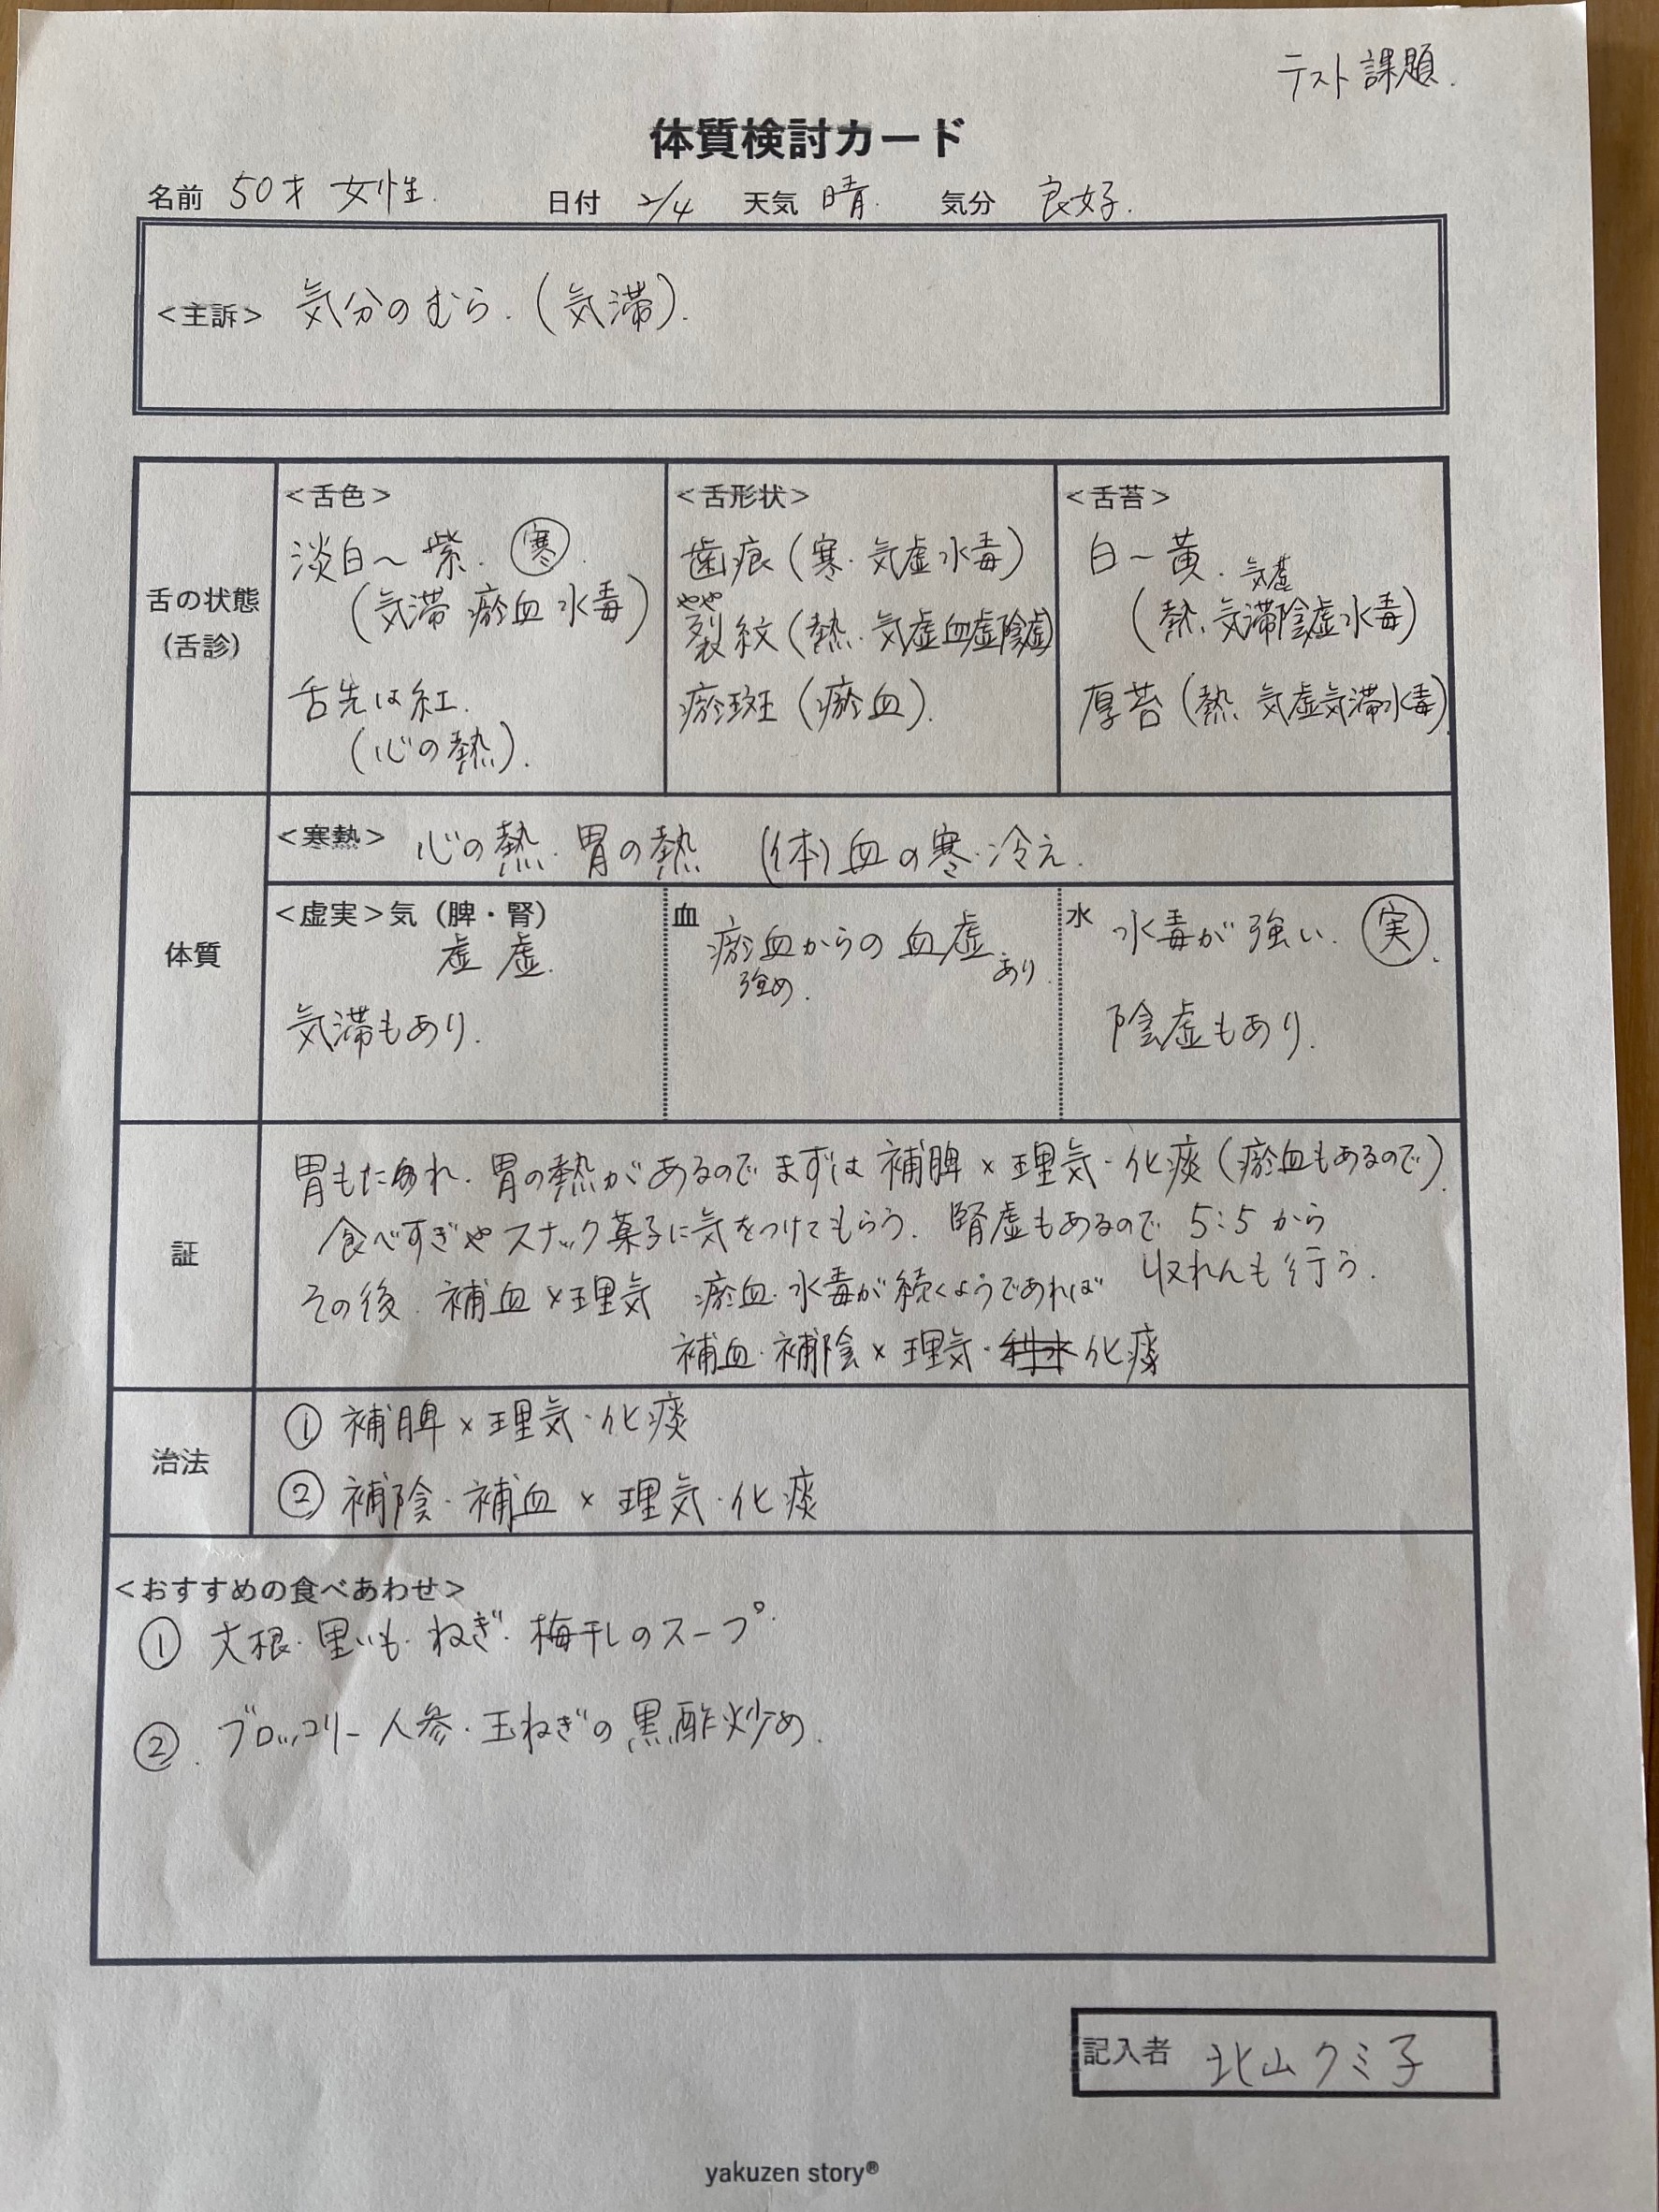 テスト課題.
体質検討カード
名前 50才 女性. 日付 2/4 天気 晴. 気分 良好.
<主訴> 気分のむら.(気滞).
舌の状態
(舌診)
<舌色>
淡白〜紫. 寒.
(気滞 瘀血 水毒)
舌先は紅.
(心の熱).
<舌形状>
歯痕(寒・気虚水毒)
やや
裂紋(熱・気虚血虚陰虚)
瘀斑(瘀血).
<舌苔>
白〜黄. 気虚
(熱、気滞陰虚水毒)
厚苔(熱、気虚気滞水毒)
体質
<寒熱> 心の熱・胃の熱 (体)血の寒・冷え.
<虚実>気(脾・腎)
虚 虚.
気滞もあり.
血 瘀血からの血虚あり.
強め.
水 水毒が強い. 実.
陰虚もあり.
証
胃もたれ.胃の熱があるのでまずは補脾×理気・化痰(瘀血もあるので).
食べすぎやスナック菓子に気をつけてもらう. 腎虚もあるので5:5から
収れんも行う.
その後.補血×理気 瘀血・水毒が続くようであれば
補血・補陰×理気・利水化痰
治法
① 補脾×理気・化痰
② 補陰・補血×理気・化痰
<おすすめの食べあわせ>
① 大根・里いも・ねぎ・梅干しのスープ.
②. ブロッコリー人参・玉ねぎの黒酢炒め.
記入者 北山クミ子
yakuzen story®